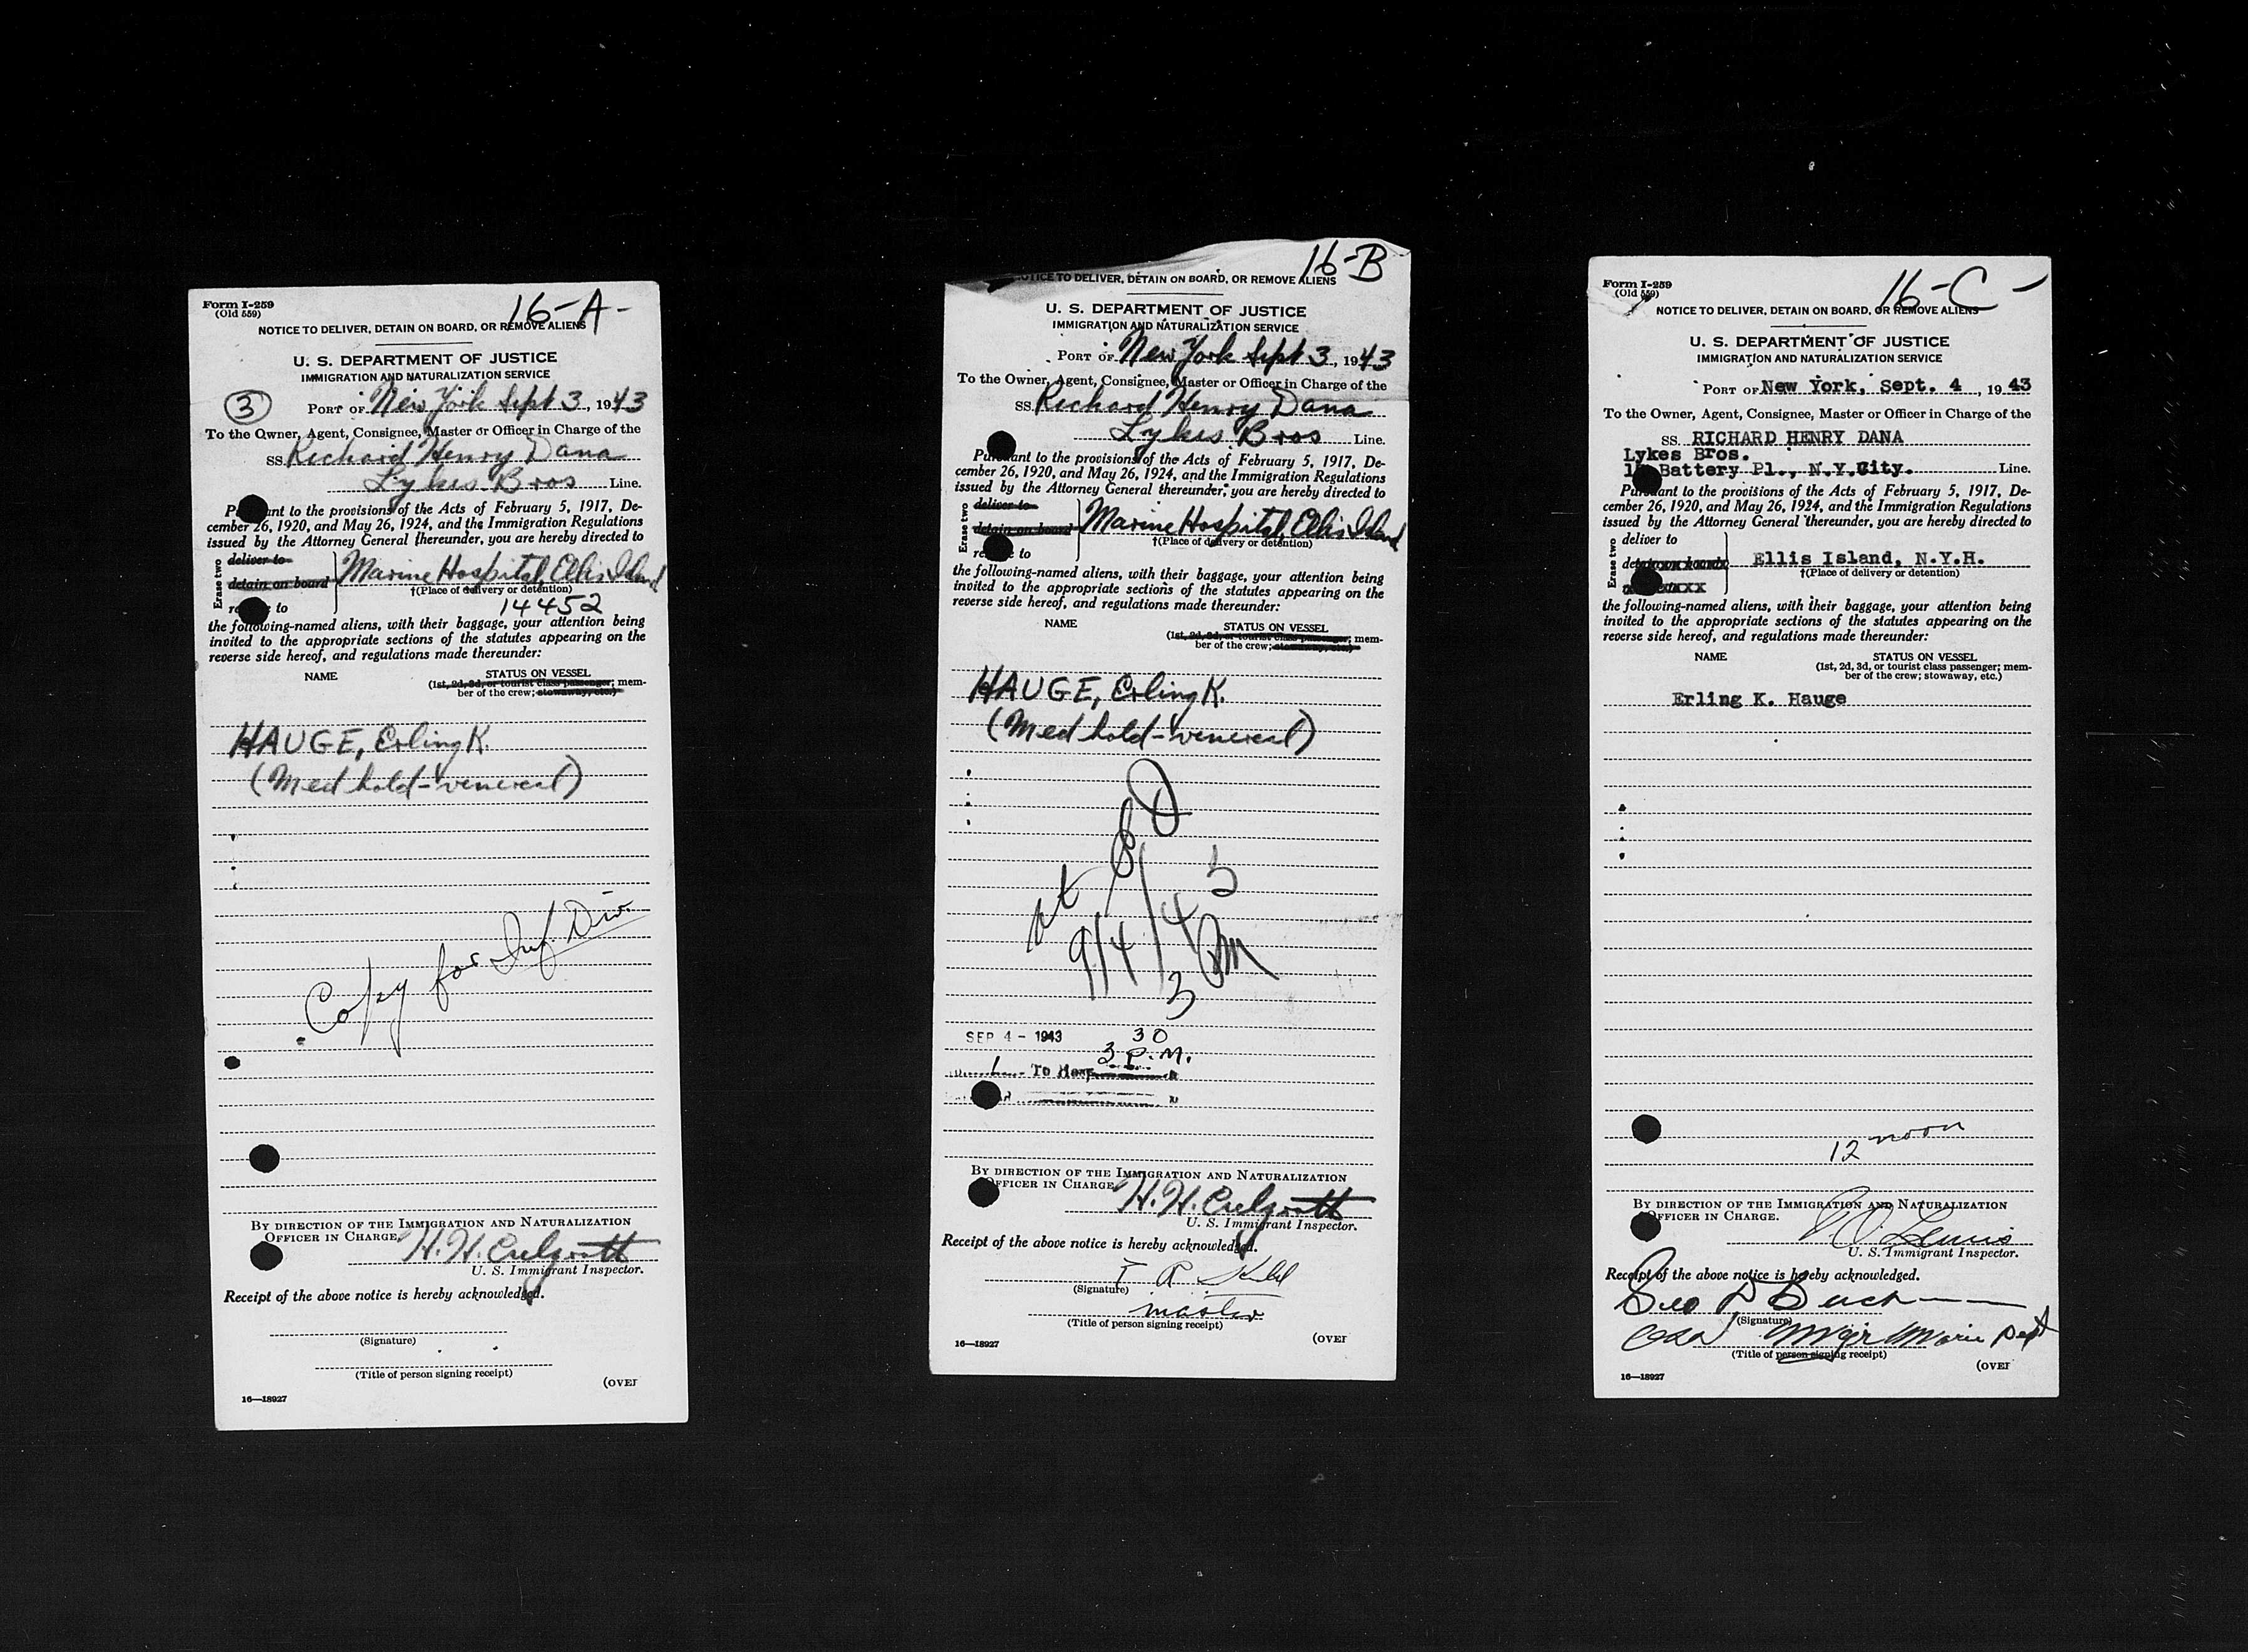 Form I-259
(Old 559)
16-A-
NOTICE TO DELIVER, DETAIN ON BOARD, OR REMOVE ALIENS
U. S. DEPARTMENT OF JUSTICE
IMMIGRATION AND NATURALIZATION SERVICE
3
PORT OF New York Sept 3, 1943
To the Owner, Agent, Consignee, Master or Officer in Charge of the
SS. Richard Henry Dana
Lykes Bros Line.
Pursuant to the provisions of the Acts of February 5, 1917, De-
cember 26, 1920, and May 26, 1924, and the Immigration Regulations
issued by the Attorney General thereunder, you are hereby directed to
Erase two
deliver to
detain on board
Marine Hospital, Ellis Island
†(Place of delivery or detention)
remove to
14452
the following-named aliens, with their baggage, your attention being
invited to the appropriate sections of the statutes appearing on the
reverse side hereof, and regulations made thereunder:
NAME
STATUS ON VESSEL
(1st, 2d, 3d, or tourist class passenger; mem-
ber of the crew; stowaway, etc.)
HAUGE, Erling K.
(Med hold-venereal)
Copy for Inf Div.
BY DIRECTION OF THE IMMIGRATION AND NATURALIZATION
OFFICER IN CHARGE.
H. H.
U. S. Immigrant Inspector.
Receipt of the above notice is hereby acknowledged.
(Signature)
(Title of person signing receipt)
16—18927
(OVER
16-B
NOTICE TO DELIVER, DETAIN ON BOARD, OR REMOVE ALIENS
U. S. DEPARTMENT OF JUSTICE
IMMIGRATION AND NATURALIZATION SERVICE
PORT OF New York Sept 3, 1943
To the Owner, Agent, Consignee, Master or Officer in Charge of the
SS. Richard Henry Dana
Lykes Bros Line.
Pursuant to the provisions of the Acts of February 5, 1917, De-
cember 26, 1920, and May 26, 1924, and the Immigration Regulations
issued by the Attorney General thereunder, you are hereby directed to
Erase two
deliver to
detain on board
Marine Hospital, Ellis Island
†(Place of delivery or detention)
remove to
the following-named aliens, with their baggage, your attention being
invited to the appropriate sections of the statutes appearing on the
reverse side hereof, and regulations made thereunder:
NAME
STATUS ON VESSEL
(1st, 2d, 3d, or tourist class passenger; mem-
ber of the crew; stowaway, etc.)
HAUGE, Erling K.
(Med hold-venereal)
9/4/43
3 PM
SEP 4 - 1943
30
3 P.M.
1 To Hosp
BY DIRECTION OF THE IMMIGRATION AND NATURALIZATION
OFFICER IN CHARGE.
H. H.
U. S. Immigrant Inspector.
Receipt of the above notice is hereby acknowledged.
(Signature)
master
(Title of person signing receipt)
16—18927
(OVER
Form I-259
(Old 559)
16-C-
NOTICE TO DELIVER, DETAIN ON BOARD, OR REMOVE ALIENS
U. S. DEPARTMENT OF JUSTICE
IMMIGRATION AND NATURALIZATION SERVICE
PORT OF New York, Sept. 4, 1943
To the Owner, Agent, Consignee, Master or Officer in Charge of the
SS. RICHARD HENRY DANA
Lykes Bros.
Battery Pl., N.Y.City. Line.
Pursuant to the provisions of the Acts of February 5, 1917, De-
cember 26, 1920, and May 26, 1924, and the Immigration Regulations
issued by the Attorney General thereunder, you are hereby directed to
Erase two
deliver to
Ellis Island, N.Y.H.
†(Place of delivery or detention)
the following-named aliens, with their baggage, your attention being
invited to the appropriate sections of the statutes appearing on the
reverse side hereof, and regulations made thereunder:
NAME
STATUS ON VESSEL
(1st, 2d, 3d, or tourist class passenger; mem-
ber of the crew; stowaway, etc.)
Erling K. Hauge
12 noon
BY DIRECTION OF THE IMMIGRATION AND NATURALIZATION
OFFICER IN CHARGE.
Lewis
U. S. Immigrant Inspector.
Receipt of the above notice is hereby acknowledged.
(Signature)
Mgr Marine Dept
(Title of person signing receipt)
16—18927
(OVER